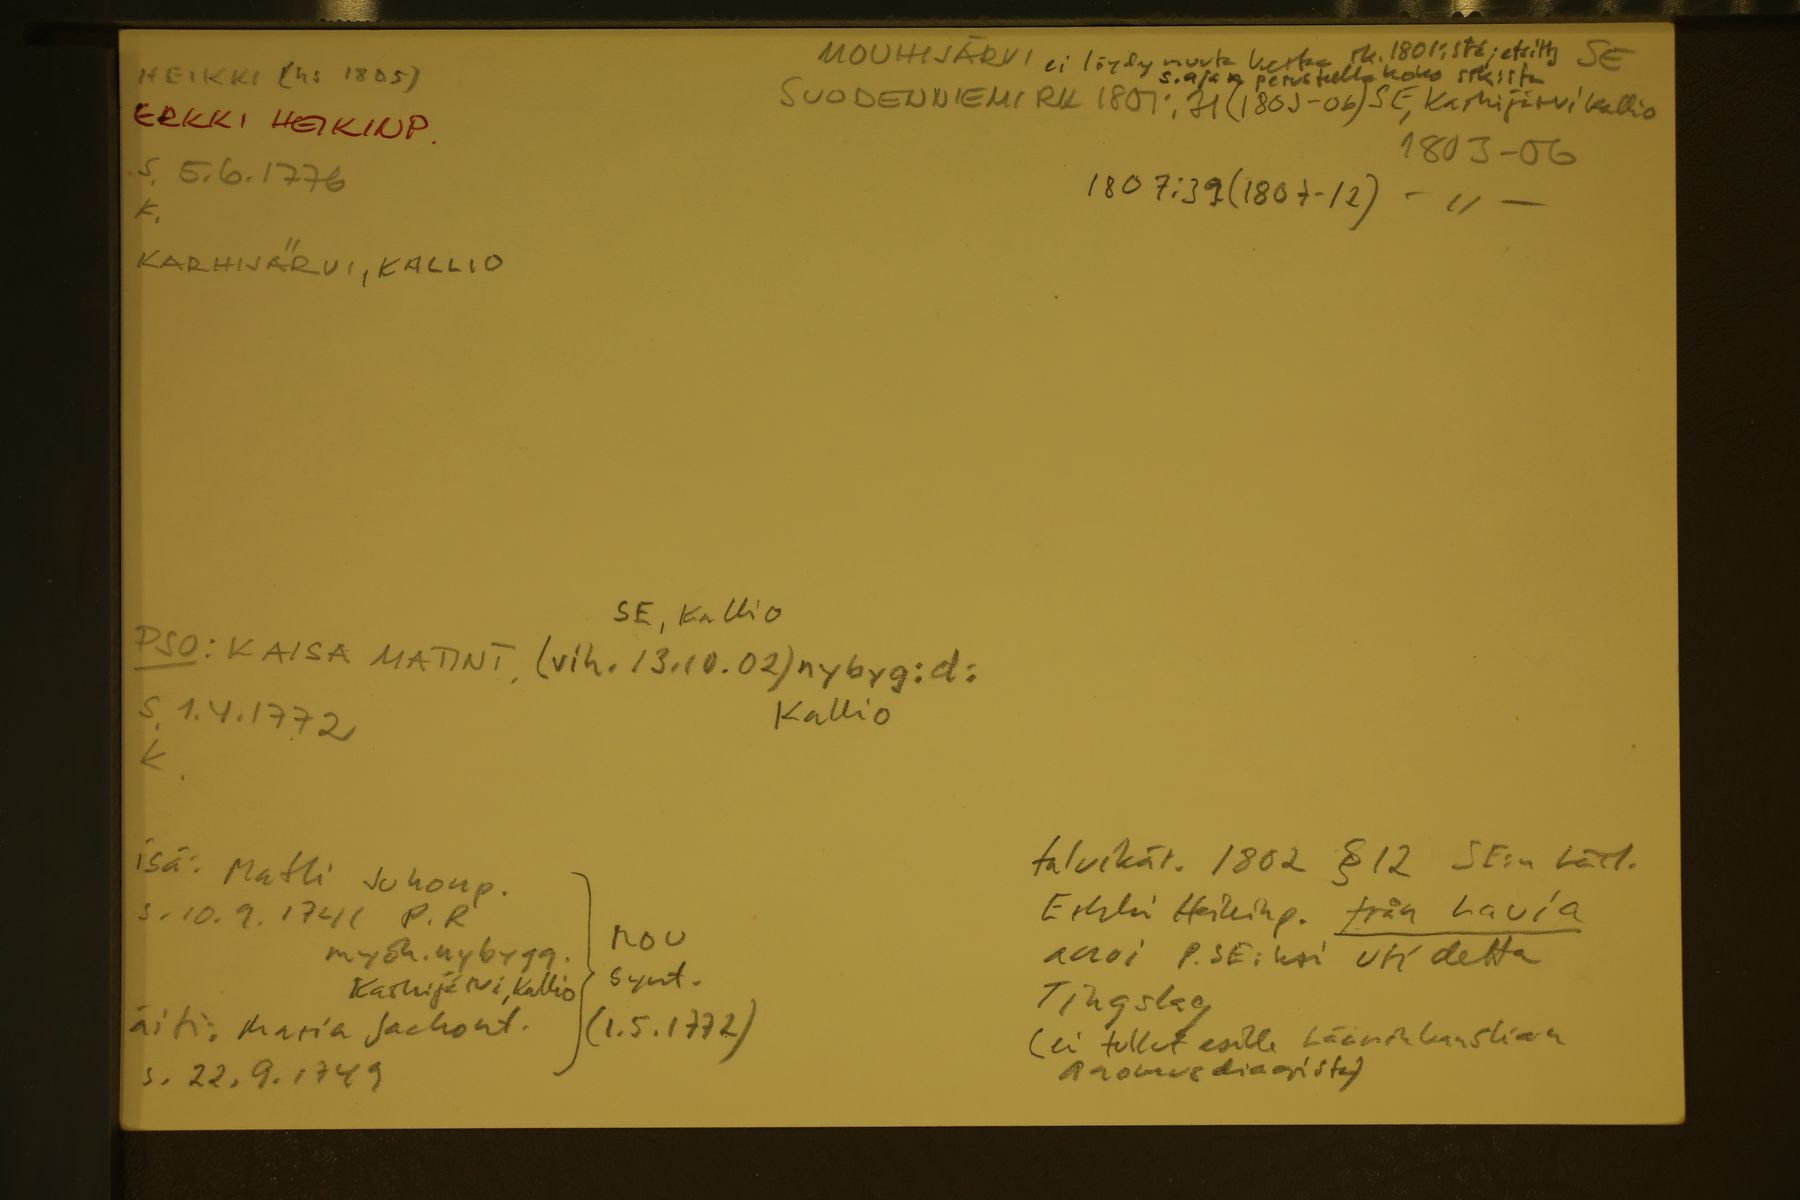 HEIKKI (hs 1805)
ERKKI HEIKINP.
s. 5.6.1776
k.
KARHIJÄRVI, KALLIO
MOUHIJÄRVI ei löydy muuta kertaa rk. 1801:stä, etsitty SE
s.ajan perusteella koko srk:sta
SUODENNIEMI RK 1801:71 (1803-06) SE, Karhijärvi Kallio
1803-06
1807:39 (1807-12) - " -
SE, Kallio
PSO: KAISA MATINT. (vih. 13.10.02) nybyg:d:
Kallio
s. 1.4.1772
k.
isä: Matti Juhonp.
s. 10.9.1741 P.R
myöh. nybygg.
Karhijärvi, Kallio
äiti: Maria Jaakont.
s. 22.9.1749
MOU
synt.
(1.5.1772)
talvikär. 1802 § 12 SE:n
Erkki Heikinp. från Lavia
anoi P.SE:ksi uti detta
Tingslag
(ei tullut esille lääninkanslian
anomusdiaarista)